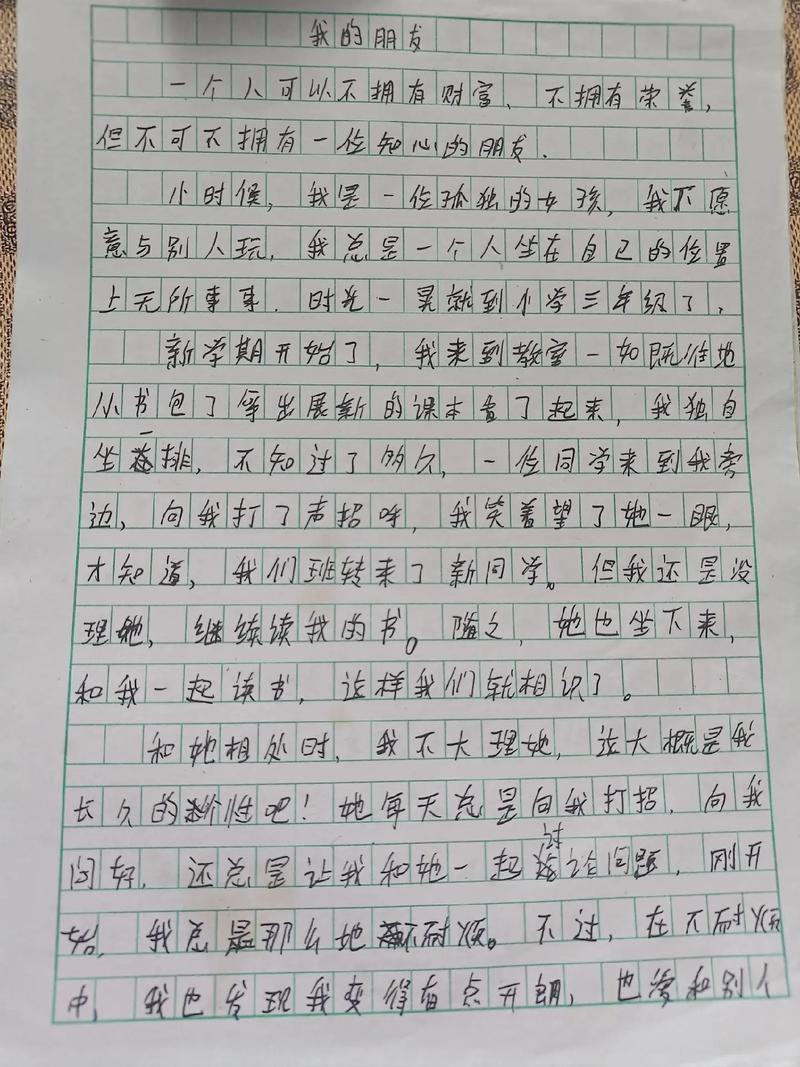 我的朋友
一个人可以不拥有财富、不拥有荣誉，
但不可不拥有一位知心的朋友．
小时候，我是一位孤独的女孩，我不愿
意与别人玩，我总是一个人坐在自己的位置
上无所事事．时光一晃就到小学三年级了，
新学期开始了，我来到教室一如既往地
小书包了拿出展新的课本看了起来，我独自
坐一排，不知过了多久，一位同学来到我旁
边，向我打了声招呼，我笑着望了她一眼，
才知道，我们班转来了新同学。但我还是没
理她，继续读我的书。随之，她也坐下来，
和我一起读书，这样我们就相识了。
和她相处时，我不大理她，这大概是我
长久的个性吧！她每天总是向我打招，向我
问好，还总是让我和她一起讨论问题，刚开
始，我总是那么地不耐烦。不过，在不耐烦
中，我也发现我变得有点开朗，也爱和别人